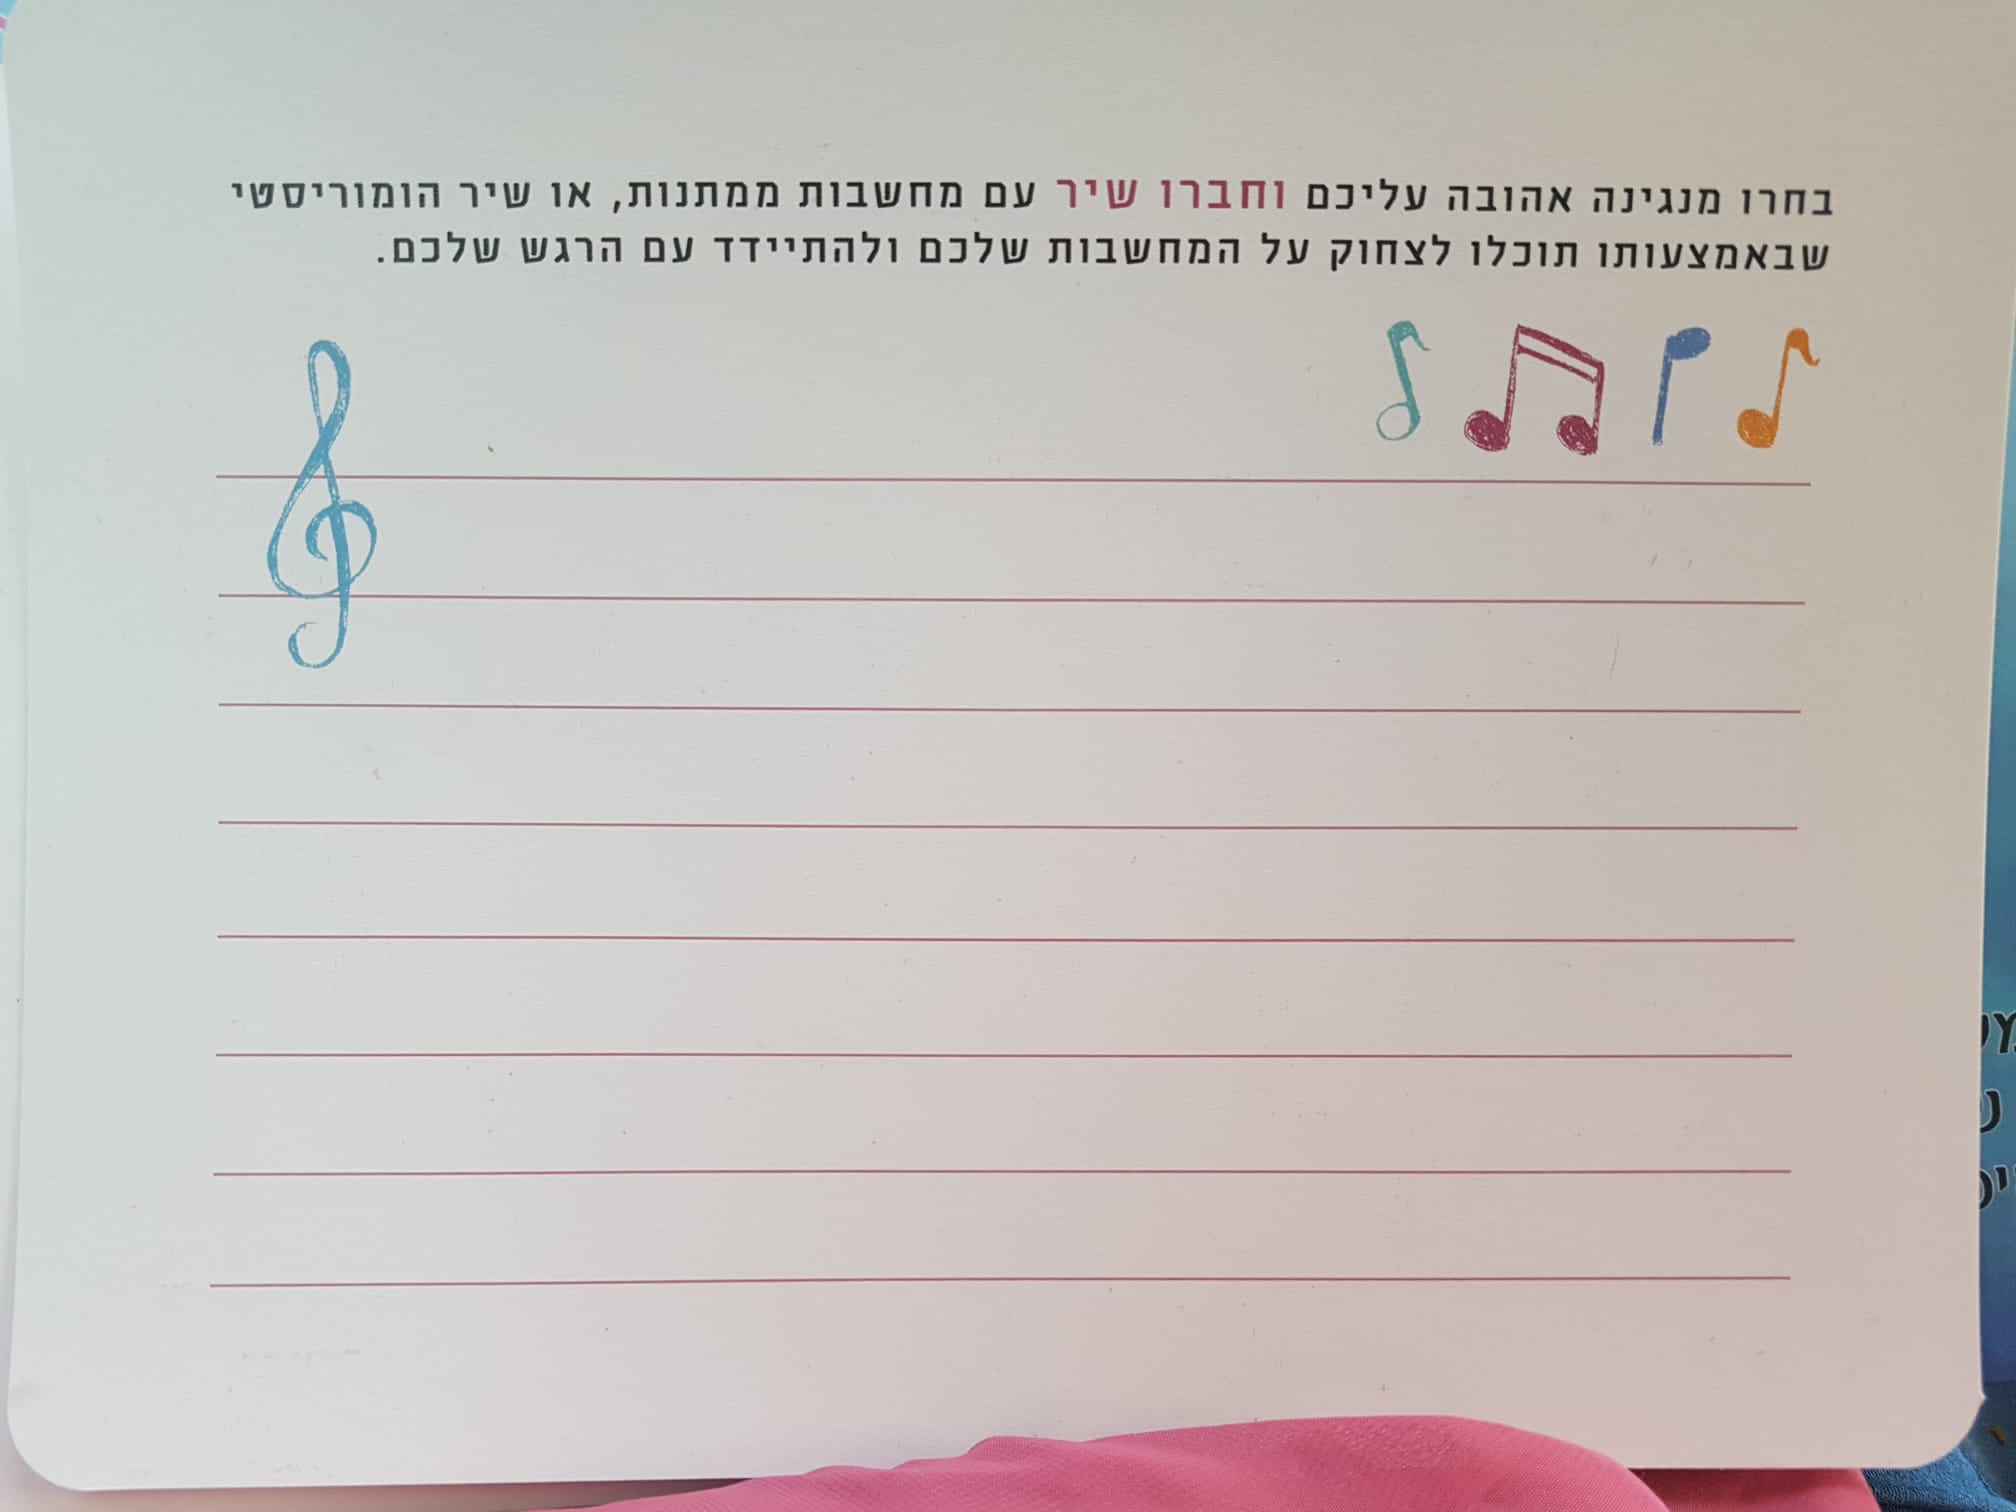 בחרו מנגינה אהובה עליכם וחברו שיר עם מחשבות ממתנות, או שיר הומוריסטי
שבאמצעותו תוכלו לצחוק על המחשבות שלכם ולהתיידד עם הרגש שלכם.